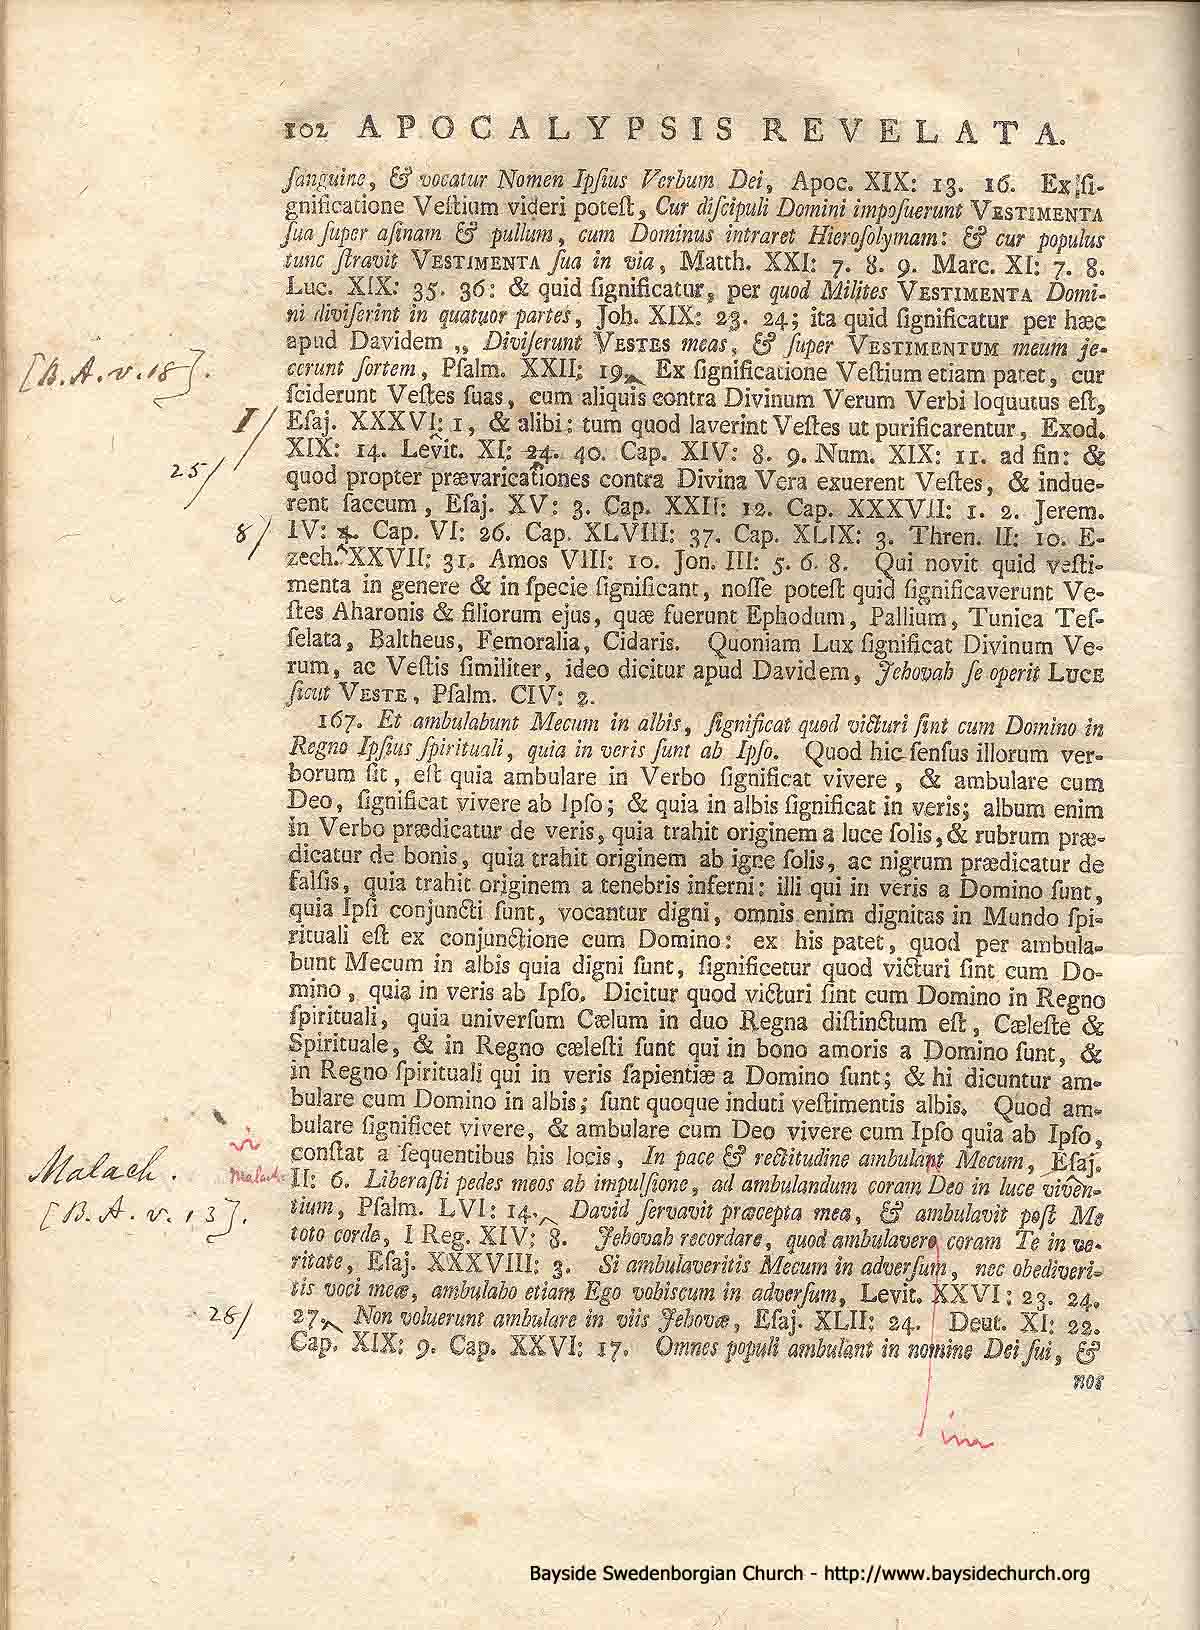 102 APOCALYPSIS REVELATA.
ſanguine, & vocatur Nomen Ipſius Verbum Dei, Apoc. XIX: 13. 16. Ex ſi-
gnificatione Veſtium videri poteſt, Cur diſcipuli Domini impoſuerunt VESTIMENTA
ſua ſuper aſinam & pullum, cum Dominus intraret Hieroſolymam: & cur populus
tunc ſtravit VESTIMENTA ſua in via, Matth. XXI: 7. 8. 9. Marc. XI: 7. 8.
Luc. XIX: 35. 36: & quid ſignificatur, per quod Milites VESTIMENTA Domi-
ni diviſerint in quatuor partes, Joh. XIX: 23. 24; ita quid ſignificatur per hæc
apud Davidem „ Diviſerunt VESTES meas, & ſuper VESTIMENTUM meum je-
[B.A.v.18].
cerunt ſortem, Pſalm. XXII: 19. Ex ſignificatione Veſtium etiam patet, cur
ſciderunt Veſtes ſuas, cum aliquis contra Divinum Verum Verbi loquutus eſt,
I/
Eſaj. XXXVI: 1, & alibi: tum quod laverint Veſtes ut purificarentur, Exod.
25/
XIX: 14. Levit. XI: 24. 40. Cap. XIV: 8. 9. Num. XIX: 11. ad fin: &
quod propter prævaricationes contra Divina Vera exuerent Veſtes, & indue-
rent ſaccum, Eſaj. XV: 3. Cap. XXII: 12. Cap. XXXVII: 1. 2. Jerem.
8/
IV: 4. Cap. VI: 26. Cap. XLVIII: 37. Cap. XLIX: 3. Thren. II: 10. E-
zech. XXVII: 31. Amos VIII: 10. Jon. III: 5. 6. 8. Qui novit quid veſti-
menta in genere & in ſpecie ſignificant, noſſe poteſt quid ſignificaverunt Ve-
ſtes Aharonis & filiorum ejus, quæ fuerunt Ephodum, Pallium, Tunica Teſ-
ſelata, Baltheus, Femoralia, Cidaris. Quoniam Lux ſignificat Divinum Ve-
rum, ac Veſtis ſimiliter, ideo dicitur apud Davidem, Jehovah ſe operit LUCE
ſicut VESTE, Pſalm. CIV: 2.
167. Et ambulabunt Mecum in albis, ſignificat quod victuri ſint cum Domino in
Regno Ipſius ſpirituali, quia in veris ſunt ab Ipſo. Quod hic ſenſus illorum ver-
borum ſit, eſt quia ambulare in Verbo ſignificat vivere, & ambulare cum
Deo, ſignificat vivere ab Ipſo; & quia in albis ſignificat in veris; album enim
in Verbo prædicatur de veris, quia trahit originem a luce ſolis, & rubrum præ-
dicatur de bonis, quia trahit originem ab igne ſolis, ac nigrum prædicatur de
falſis, quia trahit originem a tenebris inferni: illi qui in veris a Domino ſunt,
quia Ipſi conjuncti ſunt, vocantur digni, omnis enim dignitas in Mundo ſpi-
rituali eſt ex conjunctione cum Domino: ex his patet, quod per ambula-
bunt Mecum in albis quia digni ſunt, ſignificetur quod victuri ſint cum Do-
mino, quia in veris ab Ipſo. Dicitur quod victuri ſint cum Domino in Regno
ſpirituali, quia univerſum Cælum in duo Regna diſtinctum eſt, Cæleſte &
Spirituale, & in Regno cæleſti ſunt qui in bono amoris a Domino ſunt, &
in Regno ſpirituali qui in veris ſapientiæ a Domino ſunt; & hi dicuntur am-
bulare cum Domino in albis; ſunt quoque induti veſtimentis albis. Quod am-
bulare ſignificet vivere, & ambulare cum Deo vivere cum Ipſo quia ab Ipſo,
vi
conſtat a ſequentibus his locis, In pace & rectitudine ambulant Mecum, Eſaj.
Malach.
Malach.
II: 6. Liberaſti pedes meos ab impulſione, ad ambulandum coram Deo in luce viven-
[B.A.v.13].
tium, Pſalm. LVI: 14. David ſervavit præcepta mea, & ambulavit poſt Me
toto corde, I Reg. XIV: 8. Jehovah recordare, quod ambulavero coram Te in ve-
ritate, Eſaj. XXXVIII: 3. Si ambulaveritis Mecum in adverſum, nec obediveri-
tis voci meæ, ambulabo etiam Ego vobiscum in adverſum, Levit. XXVI: 23. 24.
28/
27. Non voluerunt ambulare in viis Jehovæ, Eſaj. XLII: 24. Deut. XI: 22.
Cap. XIX: 9. Cap. XXVI: 17. Omnes populi ambulant in nomine Dei ſui, &
nos
Bayside Swedenborgian Church - http://www.baysidechurch.org